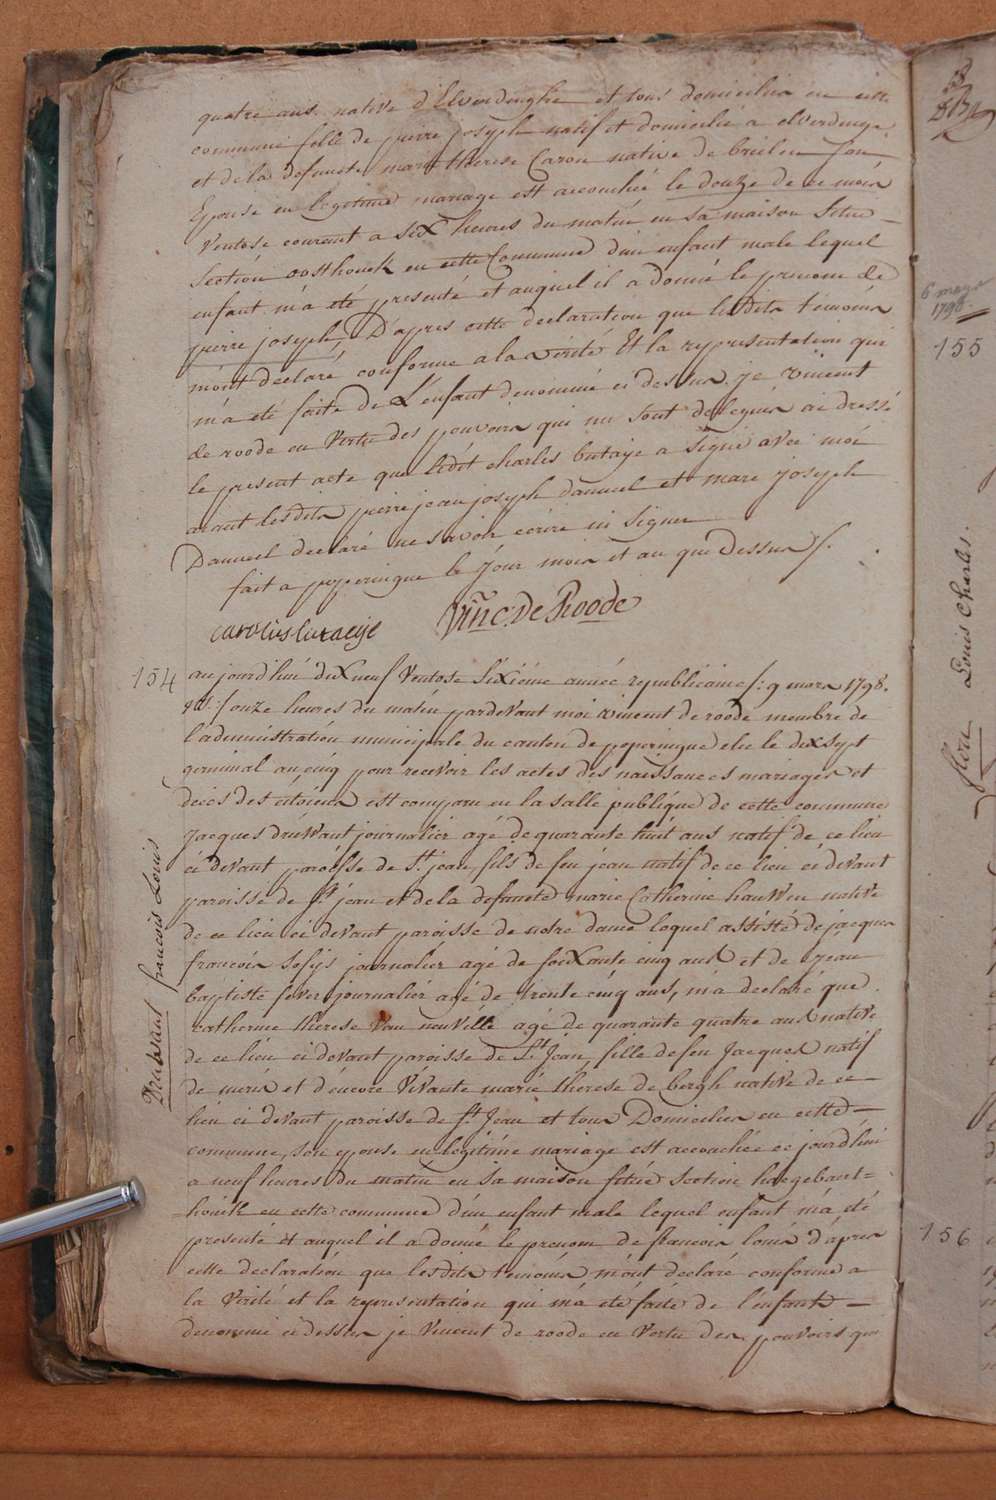 quatre ans native d'Elverdinghe et tous domiciliés en cette
commune fille de pierre joseph natif et domicilié a elverdinge
et de la defunte marie therese Caron native de brielen son
Epouse en legitime mariage est accouchée le douze de ce mois
Ventose courant a six heures du matin en sa maison situé
Section oosthouck en cette Commune d'un enfant male lequel
enfant m'a eté presenté et auquel il a donné le prenom de
pierre joseph, D'apres cette declaration que lesdits témoins
m'ont declaré conforme a la verité Et la representation qui
m'a eté faite de L'enfant denommé ci dessus. je vincent
de roode en Vertu des pouvoirs qui me sont delegués ai dressé
le present acte que ledit charles butaye a signé avec moi
aiant lesdits pierre jean joseph Danneel et marc joseph
Danneel declaré ne savoir ecrire ni signer
fait a poperingue le jour mois et an que Dessus /.
carolus butaeije Vinc: De Roode
154 aujourd'hui dix neuf Ventose Sixième année republicaine /: 9 mars 1798.
/ onze heures du matin pardevant moi vincent de roode membre de
l'administration municipale du canton de poperingue elu le dix sept
germinal an cinq pour recevoir les actes des naissances mariages et
deces des citoiens est comparu en la salle publique de cette commune
Jacques druwant journalier agé de quarante huit ans natif de ce lieu
ci devant paroisse de St. jean, fils de feu jean natif de ce lieu ci devant
paroisse de St jean et de la defuncte marie Catherine hauwen native
de ce lieu ci devant paroisse de notre dame lequel assisté de jacques
francois journalier agé de soixante cinq ans et de jean
baptiste fever journalier agé de trente cinq ans, m'a declaré que
catherine therese Van neuville agé de quarante quatre ans native
de ce lieu ci devant paroisse de St Jean, fille de feu Jacques natif
de meris et d'encore Vivante marie therese de bergh native de ce
lieu ci devant paroisse de St Jean et tous Domiciliés en cette
commune, son epouse en legitime mariage est accouchée ce jourd'hui
a neuf heures du matin en sa maison situé Section haegebaert=
houck en cette commune d'un enfant male lequel enfant m'a eté
presenté et auquel il a donné le prenom de francois louis d'après
cette declaration que lesdits temoins m'ont declaré conforme a
la Verité et la representation qui m'a eté faite de l'enfant
denommé ci dessus je Vincent de roode en Vertu des pouvoirs qui
Druwant francois Louis
6 mars
1798.
155
flori Louis Charles
156